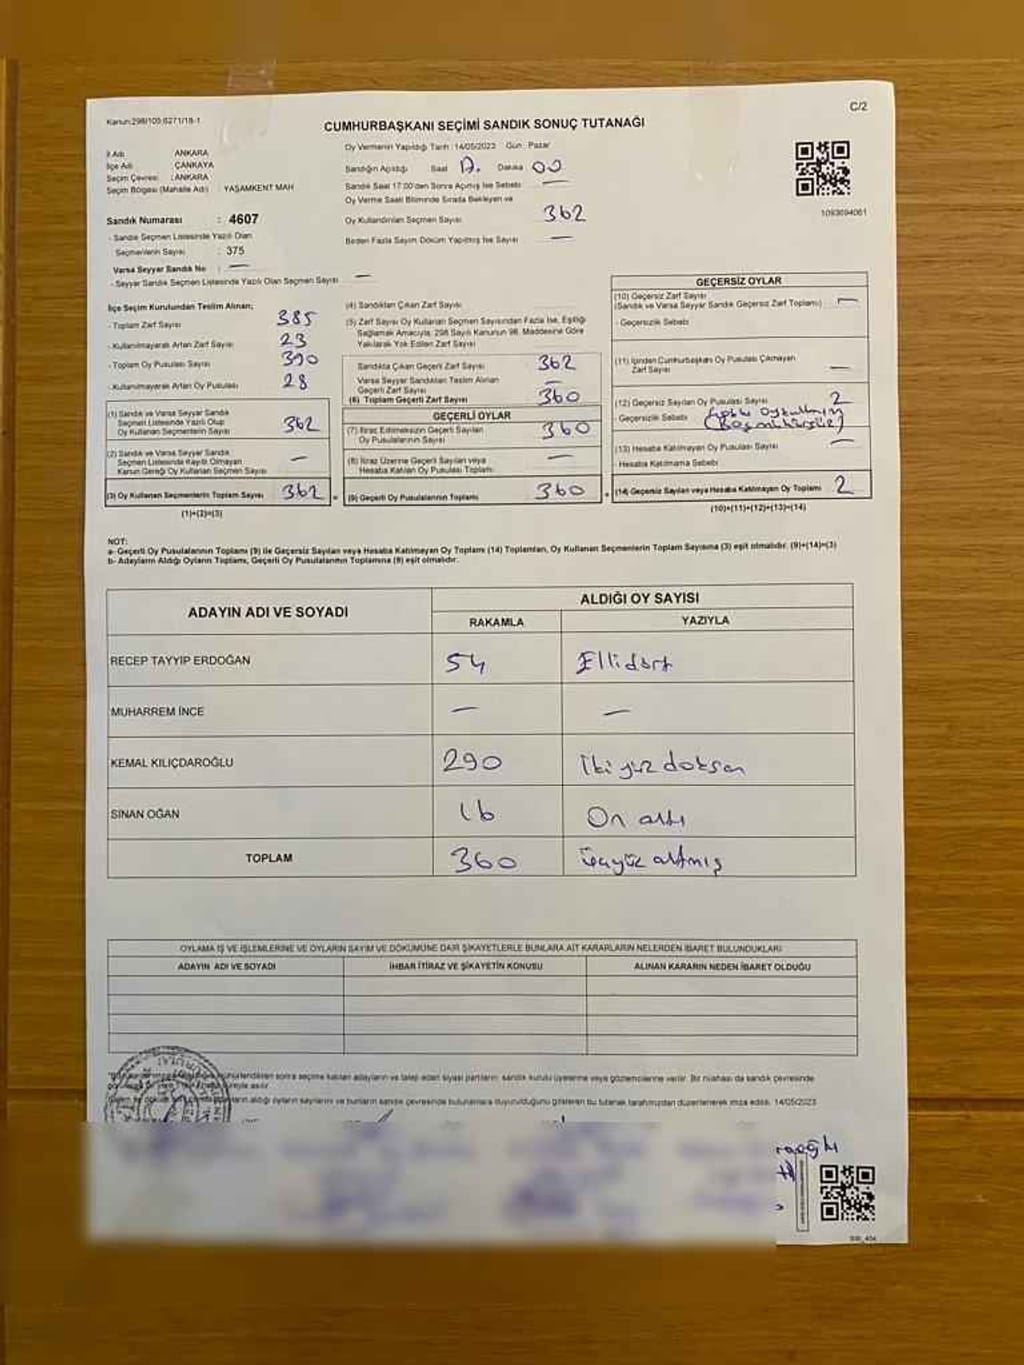 Kanun:298/105;6271/18-1
C/2
CUMHURBAŞKANI SEÇİMİ SANDIK SONUÇ TUTANAĞI
İl Adı : ANKARA
İlçe Adı : ÇANKAYA
Seçim Çevresi : ANKARA
Seçim Bölgesi (Mahalle Adı) : YAŞAMKENT MAH
Sandık Numarası : 4607
- Sandık Seçmen Listesinde Yazılı Olan
Seçmenlerin Sayısı : 375
Varsa Seyyar Sandık No : —
- Seyyar Sandık Seçmen Listesinde Yazılı Olan Seçmen Sayısı —
Oy Vermenin Yapıldığı Tarih :14/05/2023 Gün : Pazar
Sandığın Açıldığı Saat 17. Dakika 00
Sandık Saat 17:00'den Sonra Açılmış İse Sebebi —
Oy Verme Saati Bitiminde Sırada Bekleyen ve
Oy Kullandırılan Seçmen Sayısı 362
Birden Fazla Sayım Döküm Yapılmış İse Sayısı —
1093694061
İlçe Seçim Kurulundan Teslim Alınan;
- Toplam Zarf Sayısı 385
- Kullanılmayarak Artan Zarf Sayısı 23
- Toplam Oy Pusulası Sayısı 390
- Kullanılmayarak Artan Oy Pusulası 28
(1) Sandık ve Varsa Seyyar Sandık
Seçmen Listesinde Yazılı Olup
Oy Kullanan Seçmenlerin Sayısı 362
(2) Sandık ve Varsa Seyyar Sandık
Seçmen Listesinde Kayıtlı Olmayan
Kanun Gereği Oy Kullanan Seçmen Sayısı —
(3) Oy Kullanan Seçmenlerin Toplam Sayısı 362
(1)+(2)=(3)
(4) Sandıktan Çıkan Zarf Sayısı
(5) Zarf Sayısı Oy Kullanan Seçmen Sayısından Fazla İse, Eşitliği
Sağlamak Amacıyla, 298 Sayılı Kanunun 98. Maddesine Göre
Yakılarak Yok Edilen Zarf Sayısı
Sandıkta Çıkan Geçerli Zarf Sayısı 362
Varsa Seyyar Sandıktan Teslim Alınan
Geçerli Zarf Sayısı —
(6) Toplam Geçerli Zarf Sayısı 360
GEÇERLİ OYLAR
(7) İtiraz Edilmeksizin Geçerli Sayılan
Oy Pusulalarının Sayısı 360
(8) İtiraz Üzerine Geçerli Sayılan veya
Hesaba Katılan Oy Pusulası Toplamı —
(9) Geçerli Oy Pusulalarının Toplamı 360
GEÇERSİZ OYLAR
(10) Geçersiz Zarf Sayısı
(Sandık ve Varsa Seyyar Sandık Geçersiz Zarf Toplamı) —
- Geçersizlik Sebebi
(11) İçinden Cumhurbaşkanı Oy Pusulası Çıkmayan
Zarf Sayısı —
(12) Geçersiz Sayılan Oy Pusulası Sayısı 2
- Geçersizlik Sebebi
(13) Hesaba Katılmayan Oy Pusulası Sayısı —
- Hesaba Katılmama Sebebi
(14) Geçersiz Sayılan veya Hesaba Katılmayan Oy Toplamı 2
(10)+(11)+(12)+(13)=(14)
NOT:
a- Geçerli Oy Pusulalarının Toplamı (9) ile Geçersiz Sayılan veya Hesaba Katılmayan Oy Toplamı (14) Toplamları, Oy Kullanan Seçmenlerin Toplam Sayısına (3) eşit olmalıdır. (9)+(14)=(3)
b- Adayların Aldığı Oyların Toplamı, Geçerli Oy Pusulalarının Toplamına (9) eşit olmalıdır.
ADAYIN ADI VE SOYADI
ALDIĞI OY SAYISI
RAKAMLA YAZIYLA
RECEP TAYYIP ERDOĞAN 54 Ellidört
MUHARREM İNCE — —
KEMAL KILIÇDAROĞLU 290 İki yüz doksan
SİNAN OĞAN 16 On altı
TOPLAM 360 üçyüz altmış
OYLAMA İŞ VE İŞLEMLERİNE VE OYLARIN SAYIM VE DÖKÜMÜNE DAİR ŞİKAYETLERLE BUNLARA AİT KARARLARIN NELERDEN İBARET BULUNDUKLARI
ADAYIN ADI VE SOYADI İHBAR İTİRAZ VE ŞİKAYETİN KONUSU ALINAN KARARIN NEDEN İBARET OLDUĞU
sonra seçime katılan adayların ve talep eden siyasi partilerin sandık kurulu üyelerine veya gözlemcilerine verilir. Bir nüshası da sandık çevresinde
aldığı oyların sayılarını ve bunların sandık çevresinde bulunanlara duyurulduğunu gösteren bu tutanak tarafımızdan düzenlenerek imza edildi. 14/05/2023